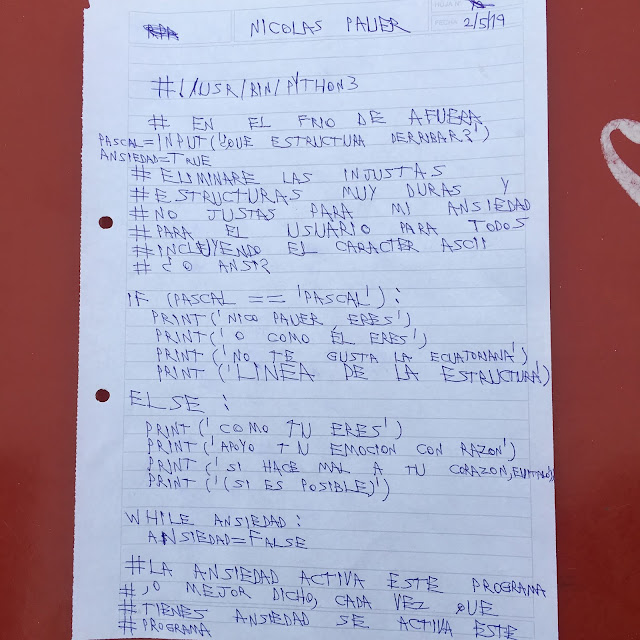 HOJA Nº
NICOLAS PAUER
FECHA 2/5/19
#!/USR/BIN/PYTHON3
# EN EL FRIO DE AFUERA
PASCAL=INPUT('¿QUE ESTRUCTURA DERRIBAR?')
ANSIEDAD=TRUE
# ELIMINARE LAS INJUSTAS
# ESTRUCTURAS MUY DURAS Y
# NO JUSTAS PARA MI ANSIEDAD
# PARA EL USUARIO PARA TODOS
# INCLUYENDO EL CARACTER ASCII
# ¿O ANSI?
IF (PASCAL == 'PASCAL'):
PRINT('NICO PAUER ERES')
PRINT('O COMO ÉL ERES')
PRINT('NO TE GUSTA LA ECUATORIANA')
PRINT('LINEA DE LA ESTRUCTURA')
ELSE:
PRINT('COMO TU ERES')
PRINT('APOYO TU EMOCION CON RAZON')
PRINT('SI HACE MAL A TU CORAZON,
PRINT('(SI ES POSIBLE)')
WHILE ANSIEDAD:
ANSIEDAD=FALSE
#LA ANSIEDAD ACTIVA ESTE PROGRAMA
# ,O MEJOR DICHO, CADA VEZ QUE
# TIENES ANSIEDAD SE ACTIVA ESTE
# PROGRAMA